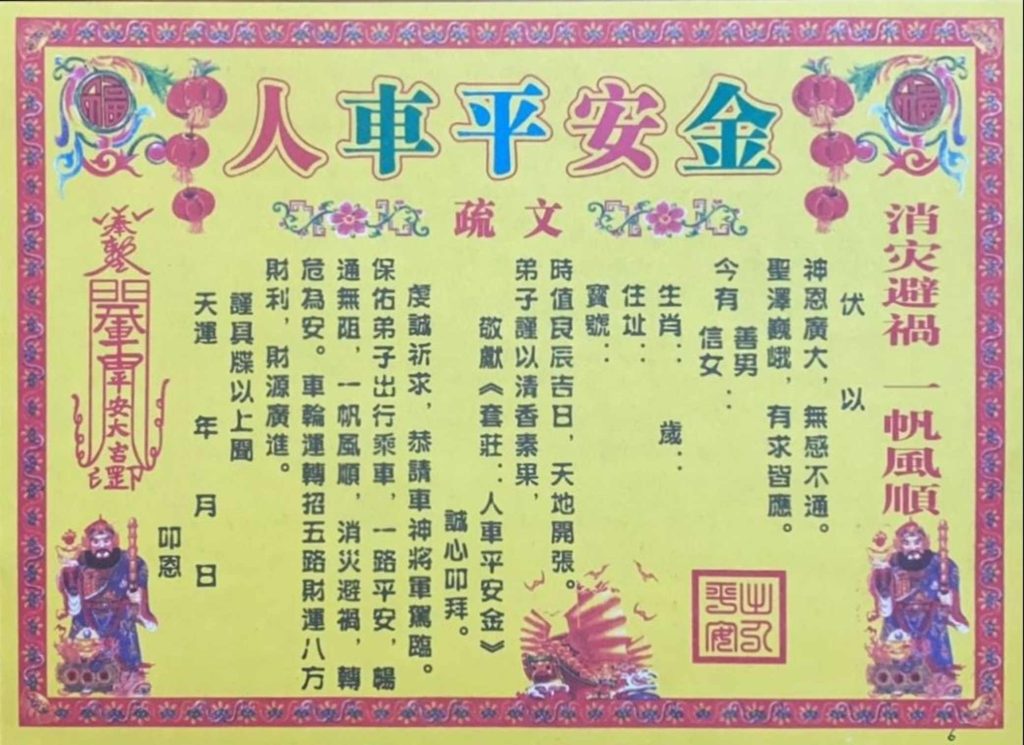 人車平安金
疏文
消灾避禍 一帆風順
伏以
神恩廣大，無感不通。
聖澤巍峨，有求皆應。
今有 善男 信女：
生肖： 歲：
住址：
寶號：
時值良辰吉日，天地開張。
弟子謹以清香素果，
敬獻《套莊：人車平安金》
誠心叩拜。
虔誠祈求，恭請車神將軍駕臨。
保佑弟子出行乘車，一路平安，暢
通無阻，一帆風順，消災避禍，轉
危為安。車輪運轉招五路財運八方
財利，財源廣進。
謹具牒以上聞
天運 年 月 日
叩恩
出入平安
平安大吉
福
福
6